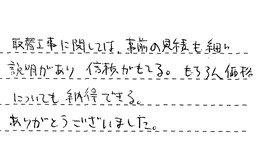 取替工事に関しては、事前の見積も細い
説明があり 信頼がもてる。もちろん価格
についても納得できる。
ありがとうございました。